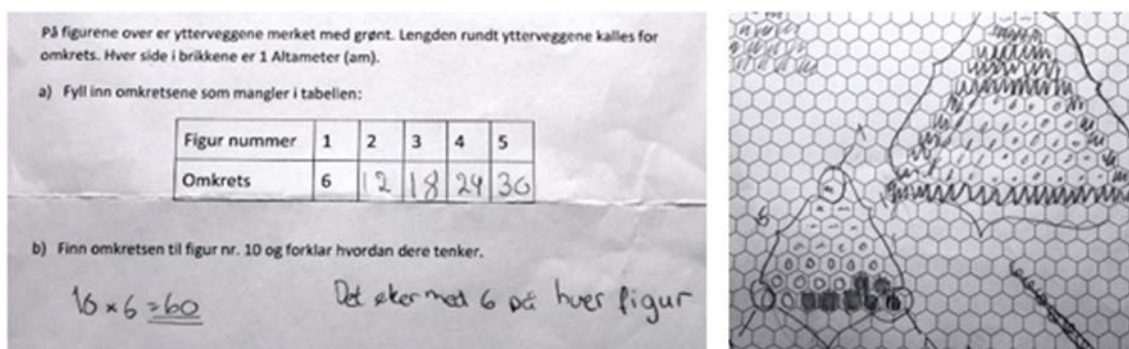 På figurene over er ytterveggene merket med grønt. Lengden rundt ytterveggene kalles for
omkrets. Hver side i brikkene er 1 Altameter (am).
a) Fyll inn omkretsene som mangler i tabellen:
Figur nummer 1 2 3 4 5
Omkrets 6 12 18 24 30
b) Finn omkretsen til figur nr. 10 og forklar hvordan dere tenker.
10 × 6 = 60 Det øker med 6 på hver figur